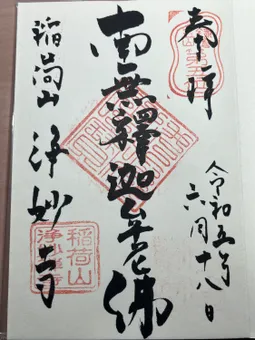 奉拝
令和五年
六月十八日
南無釋迦牟尼佛
稲荷山 浄妙寺
稲荷山
浄妙禅寺